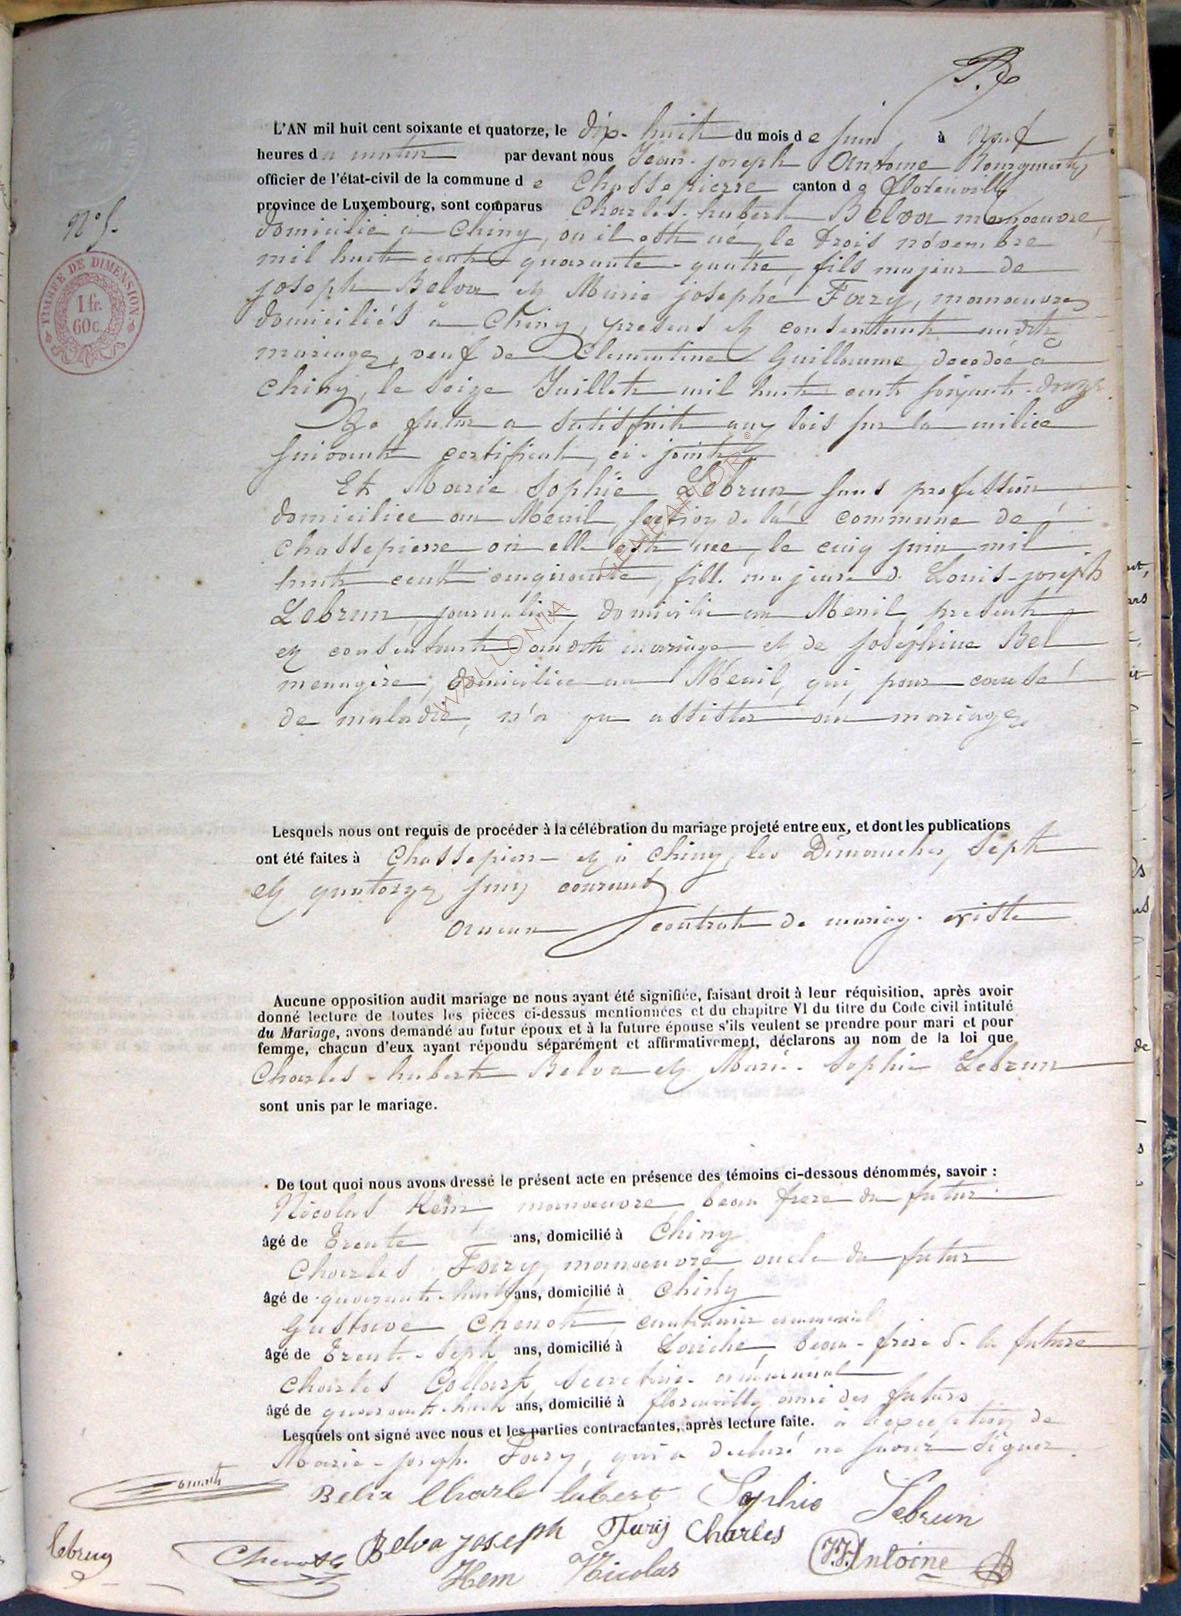 L'AN mil huit cent soixante et quatorze, le dix-huit du mois de juin à neuf
heures du matin par devant nous Jean-Joseph Antoine Bourgmestre
officier de l'état-civil de la commune de Chassepierre canton de Florenville
province de Luxembourg, sont comparus Charles-hubert Belva manoeuvre,
domicilié à Chiny, où il est né, le trois novembre
mil huit cent quarante-quatre, fils majeur de
Joseph Belva et Marie josephe Fozy, manoeuvres
domiciliés à Chiny, présens et consentant audit
mariage, veuf de Clementine Guillaume, decedée à
Chiny, le seize Juillet mil huit cent soixante-douze.
Le futur a satisfait aux lois sur la milice
suivant certificat, ci-joint
Et Marie Sophie Lebrun sans profession
domiciliée au Ménil section de la commune de
Chassepierre où elle est née, le cinq juin mil
huit cent cinquante, fille majeure de Louis-joseph
Lebrun, journalier, domicilié au Menil présent
et consentant audit mariage et de Josephine Bel
menagère, domiciliée au Ménil, qui, pour cause
de maladie, n'a pu assister au mariage.
N° 5.
TIMBRE DE DIMENSION
1 fr.
60 c.
WALLONIA GENEANOR
Lesquels nous ont requis de procéder à la célébration du mariage projeté entre eux, et dont les publications
ont été faites à Chassepierre et à Chiny, les Dimanches, sept
et quatorze juin courant
Aucun contrat de mariage existe
Aucune opposition audit mariage ne nous ayant été signifiée, faisant droit à leur réquisition, après avoir
donné lecture de toutes les pièces ci-dessus mentionnées et du chapitre VI du titre du Code civil intitulé
du Mariage, avons demandé au futur époux et à la future épouse s'ils veulent se prendre pour mari et pour
femme, chacun d'eux ayant répondu séparément et affirmativement, déclarons au nom de la loi que
Charles-hubert Belva et Marie-Sophie Lebrun
sont unis par le mariage.
De tout quoi nous avons dressé le présent acte en présence des témoins ci-dessous dénommés, savoir :
Nicolas Hem manoeuvre beau frere du futur
âgé de trente ans, domicilié à Chiny
Charles Fozy, manoeuvre oncle du futur
âgé de quarante-huit ans, domicilié à Chiny
Gustave Chenot cantonnier communal
âgé de trente-sept ans, domicilié à beau-frère de la future
Charles secrétaire communal
âgé de quarante-huit ans, domicilié à florenville ami des futurs
Lesquels ont signé avec nous et les parties contractantes, après lecture faite. à l'exception de
Marie-joseph Fozy, qui a declaré ne savoir signer.
Belva Charle hubert Sophie Lebrun
Belva joseph Charles
lebrun Chenot Hem Nicolas J.J. Antoine